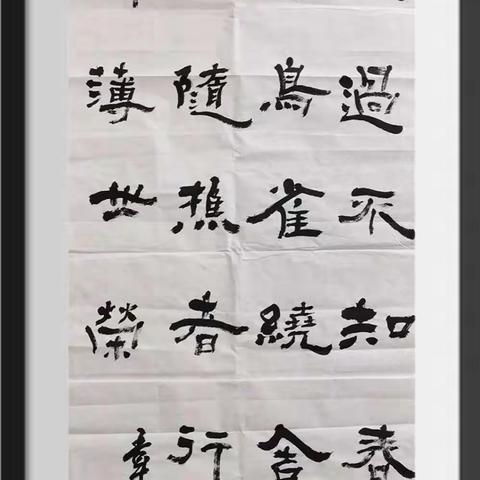 過不知春
鳥雀繞舍
隨樵者行
薄世榮